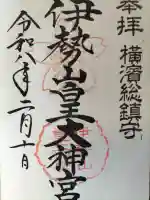 奉拝 横濱総鎮守
伊勢山皇大神宮
令和八年二月十日